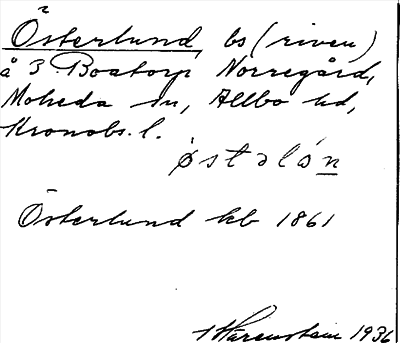 Österlund, bs (riven)
å 3 Boatorp Norregård,
Moheda sn, Allbo hd,
Kronobs. l.
østəlón
Österlund hb 1861
Härenstam 1936